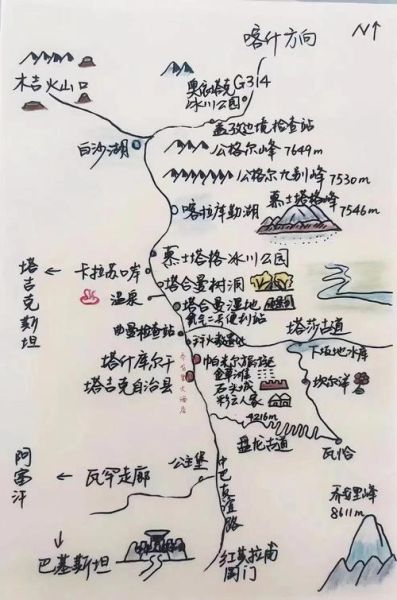 N
喀什方向
G314
木吉火山口
奥依塔克
冰川公园
盖孜边境检查站
白沙湖
公格尔峰 7649m
公格尔九别峰 7530m
慕士塔格峰
7546m
喀拉库勒湖
慕士塔格冰川公园
塔吉克斯坦
卡拉苏口岸
塔合曼树洞
温泉
塔合曼湿地
便利站
塔莎古道
曲曼检查站
下坂地水库
塔什库尔干
塔吉克自治县
帕米尔旅游区
金草滩
石头城
彩云人家
坎尔洋
4216m
盘龙古道
瓦恰
公主堡
阿富汗
瓦罕走廊
中巴友谊路
乔戈里峰
8611m
巴基斯坦
红其拉甫
国门